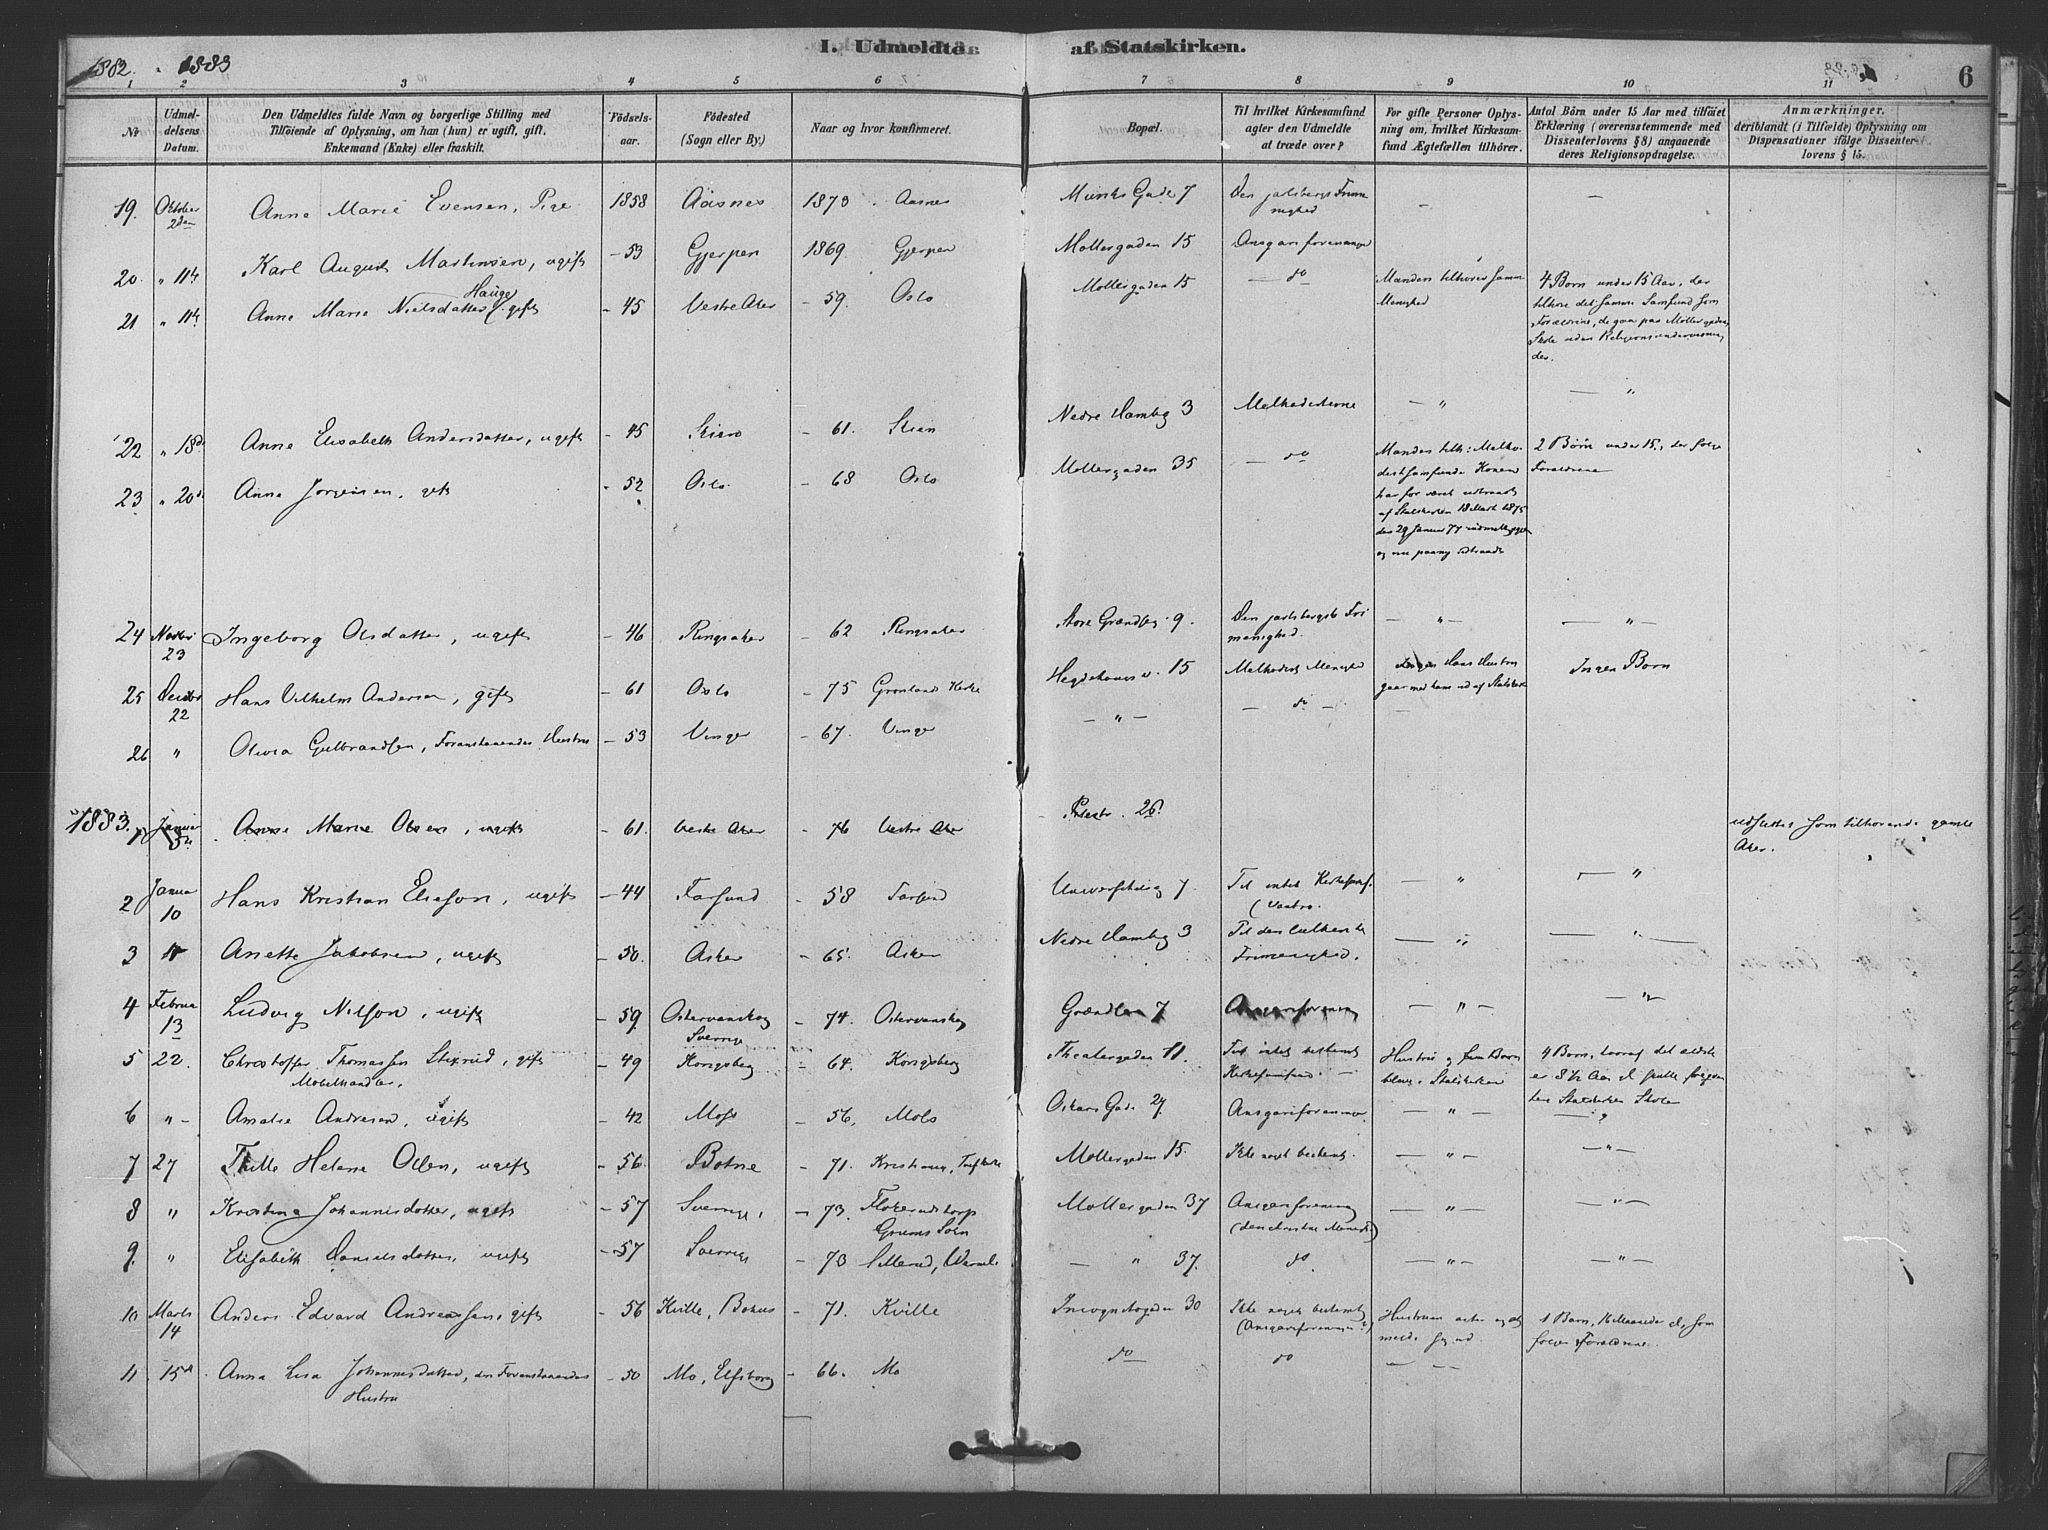 I. Udmeldte af Statskirken.
1882. 1883 6
1 2 3 4 5 6 7 8 9 10 11
No
Udmeldelsens Datum.
Den Udmeldtes fulde Navn og borgerlige Stilling med
Tilföiende af Oplysning, om han (hun) er ugift, gift,
Enkemand (Enke) eller fraskilt.
Födselsaar.
Födested
(Sogn eller By.)
Naar og hvor konfirmeret.
Bopæl.
Til hvilket Kirkesamfund
agter den Udmeldte
at træde over?
For gifte Personer Oplysning om, hvilket Kirkesamfund Ægtefællen tilhörer.
Antal Börn under 15 Aar med tilföiet
Erklæring (overensstemmende med
Dissenterlovens § 8) angaaende
deres Religionsopdragelse.
Anmærkninger,
deriblandt (i Tilfælde) Oplysning om
Dispensationer ifölge Dissenterlovens § 15.
19. Oktober 2den Anne Marie Evensen, Pige 1858 Aasnes 1873 Aasnes Munks Gade 7 Den jarlsbergs Frimenighed –
20. " 11te Karl August Martinsen, ugift – 53 Gjerpen 1869 Gjerpen Möllergaden 15 Ansgarforeningen
21 " 11te Anne Marie Nielsdatter Hauge, gift – 45 Vestre Aker – 59. Oslo Möllergaden 15 – do – Manden tilhörer samme Menighed 4 Börn under 15 Aar, der
tilhöre det samme Samfund som
Forældrene, de gaa paa Möllergadens
Skole uden Religionsundervisning
der.
22 " 18de Anne Elisabeth Andersdatter, ugift – 45 Skien – 61. Skien Nedre Hambg 3 Methodisterne – " – "
23 " 20de Anna Jörgensen, gift – 52 Oslo – 68 Oslo Möllergaden 35 – do Manden tilh: Methodistsamfundet Konen
har för været udtraadt
af Statskirken 18 Marts 1875
den 29 Januar 77 indmeldt igjen
og nu paany udtraadt 2 Börn under 15, der fölge
Forældrene
24 Novbr 23 Ingeborg Olsdatter, ugift – 46 Ringsaker – 62 Ringsaker Store Grændseg. 9. Den jarlsbergske Frimenighed. – " – – " –
25 Decbr 22 Hans Vilhelm Andersen, gift – 61 Oslo – 75 Grönlands Kirke Hegdehaugsv. 15 Methodist Menighed Hans Hustru
gaar med ham ud af Statskirke Ingen Börn
26 " Olivia Gulbrandsen, Foranstaaendes Hustru – 53 Vinger – 67. Vinger – " – – do –
1883. 1) Januar Anne Marie Olsen, ugift – 61. Vestre Aker – 76 Vestre Aker 26. udsættes som tilhörende gamle
Aker.
2 Janua 10 Hans Kristian Eliesson, ugift – 44 Farsund – 58 Farsund Universitetsg 7. Til intet Kirkesamf. – " – "
3 " Anette Jakobsen, ugift – 50. Asker – 65. Asker Nedre Hambg 3 Til den lutherske Frimenighed. – " – "
4 Februa 13 Ludvig Nilson, ugift – 59 Östervanskog Sverrige – 74. Östervanskog Grændsen 7 Ansgarforening – " – – " –
5 22. Christoffer Thomassen Stixrud, gift
Möbelhandler. – 49 Kongsberg – 64. Kongsberg Theatergaden 11. Til intet bestemt
Kirkesamfund. – Hustru og fem Börn
blive i Statskirken 4 Börn, hvoraf det ældste
er 8 1/2 Aar
Statskirken Skole
6 " – Amalie Andresen, ugift – 42 Moss – 56. Moss Oskars Gade 27. Ansgarforening – " – – "
7 27 Thille Helene Olsen, ugift – 56. Botne – 71. Kristiania, Trefkirke Möllergaden 15. Ikke noget bestemt. – " – – " –
8 " Kristina Johannisdatter, ugift – 57 Sverrige, – 73.
Grums Sokn Möllergaden 37 Ansgarforening – " – – " –
9. " Elisabeth Danielsdatter, ugift – 57 Sverrige – 73 Sillerud, Wermle – " 37. do. – " – – " –
10 Marts 14 Anders Edvard Andreassen, gift – 56 Kville, Bohus – 71. Kville Incognitogaden 30 Ikke noget bestemt
(Ansgarforeningen?) Hustruen agter og at
melde sig ud. 1 Barn, 16 Maaneder gl, som
fölger Forældrene.
11 15de Anna Lisa Johannesdatter, den Foranstaaendes
Hustru – 50 Mo, Elfsborg – 66. Mo do do – – –